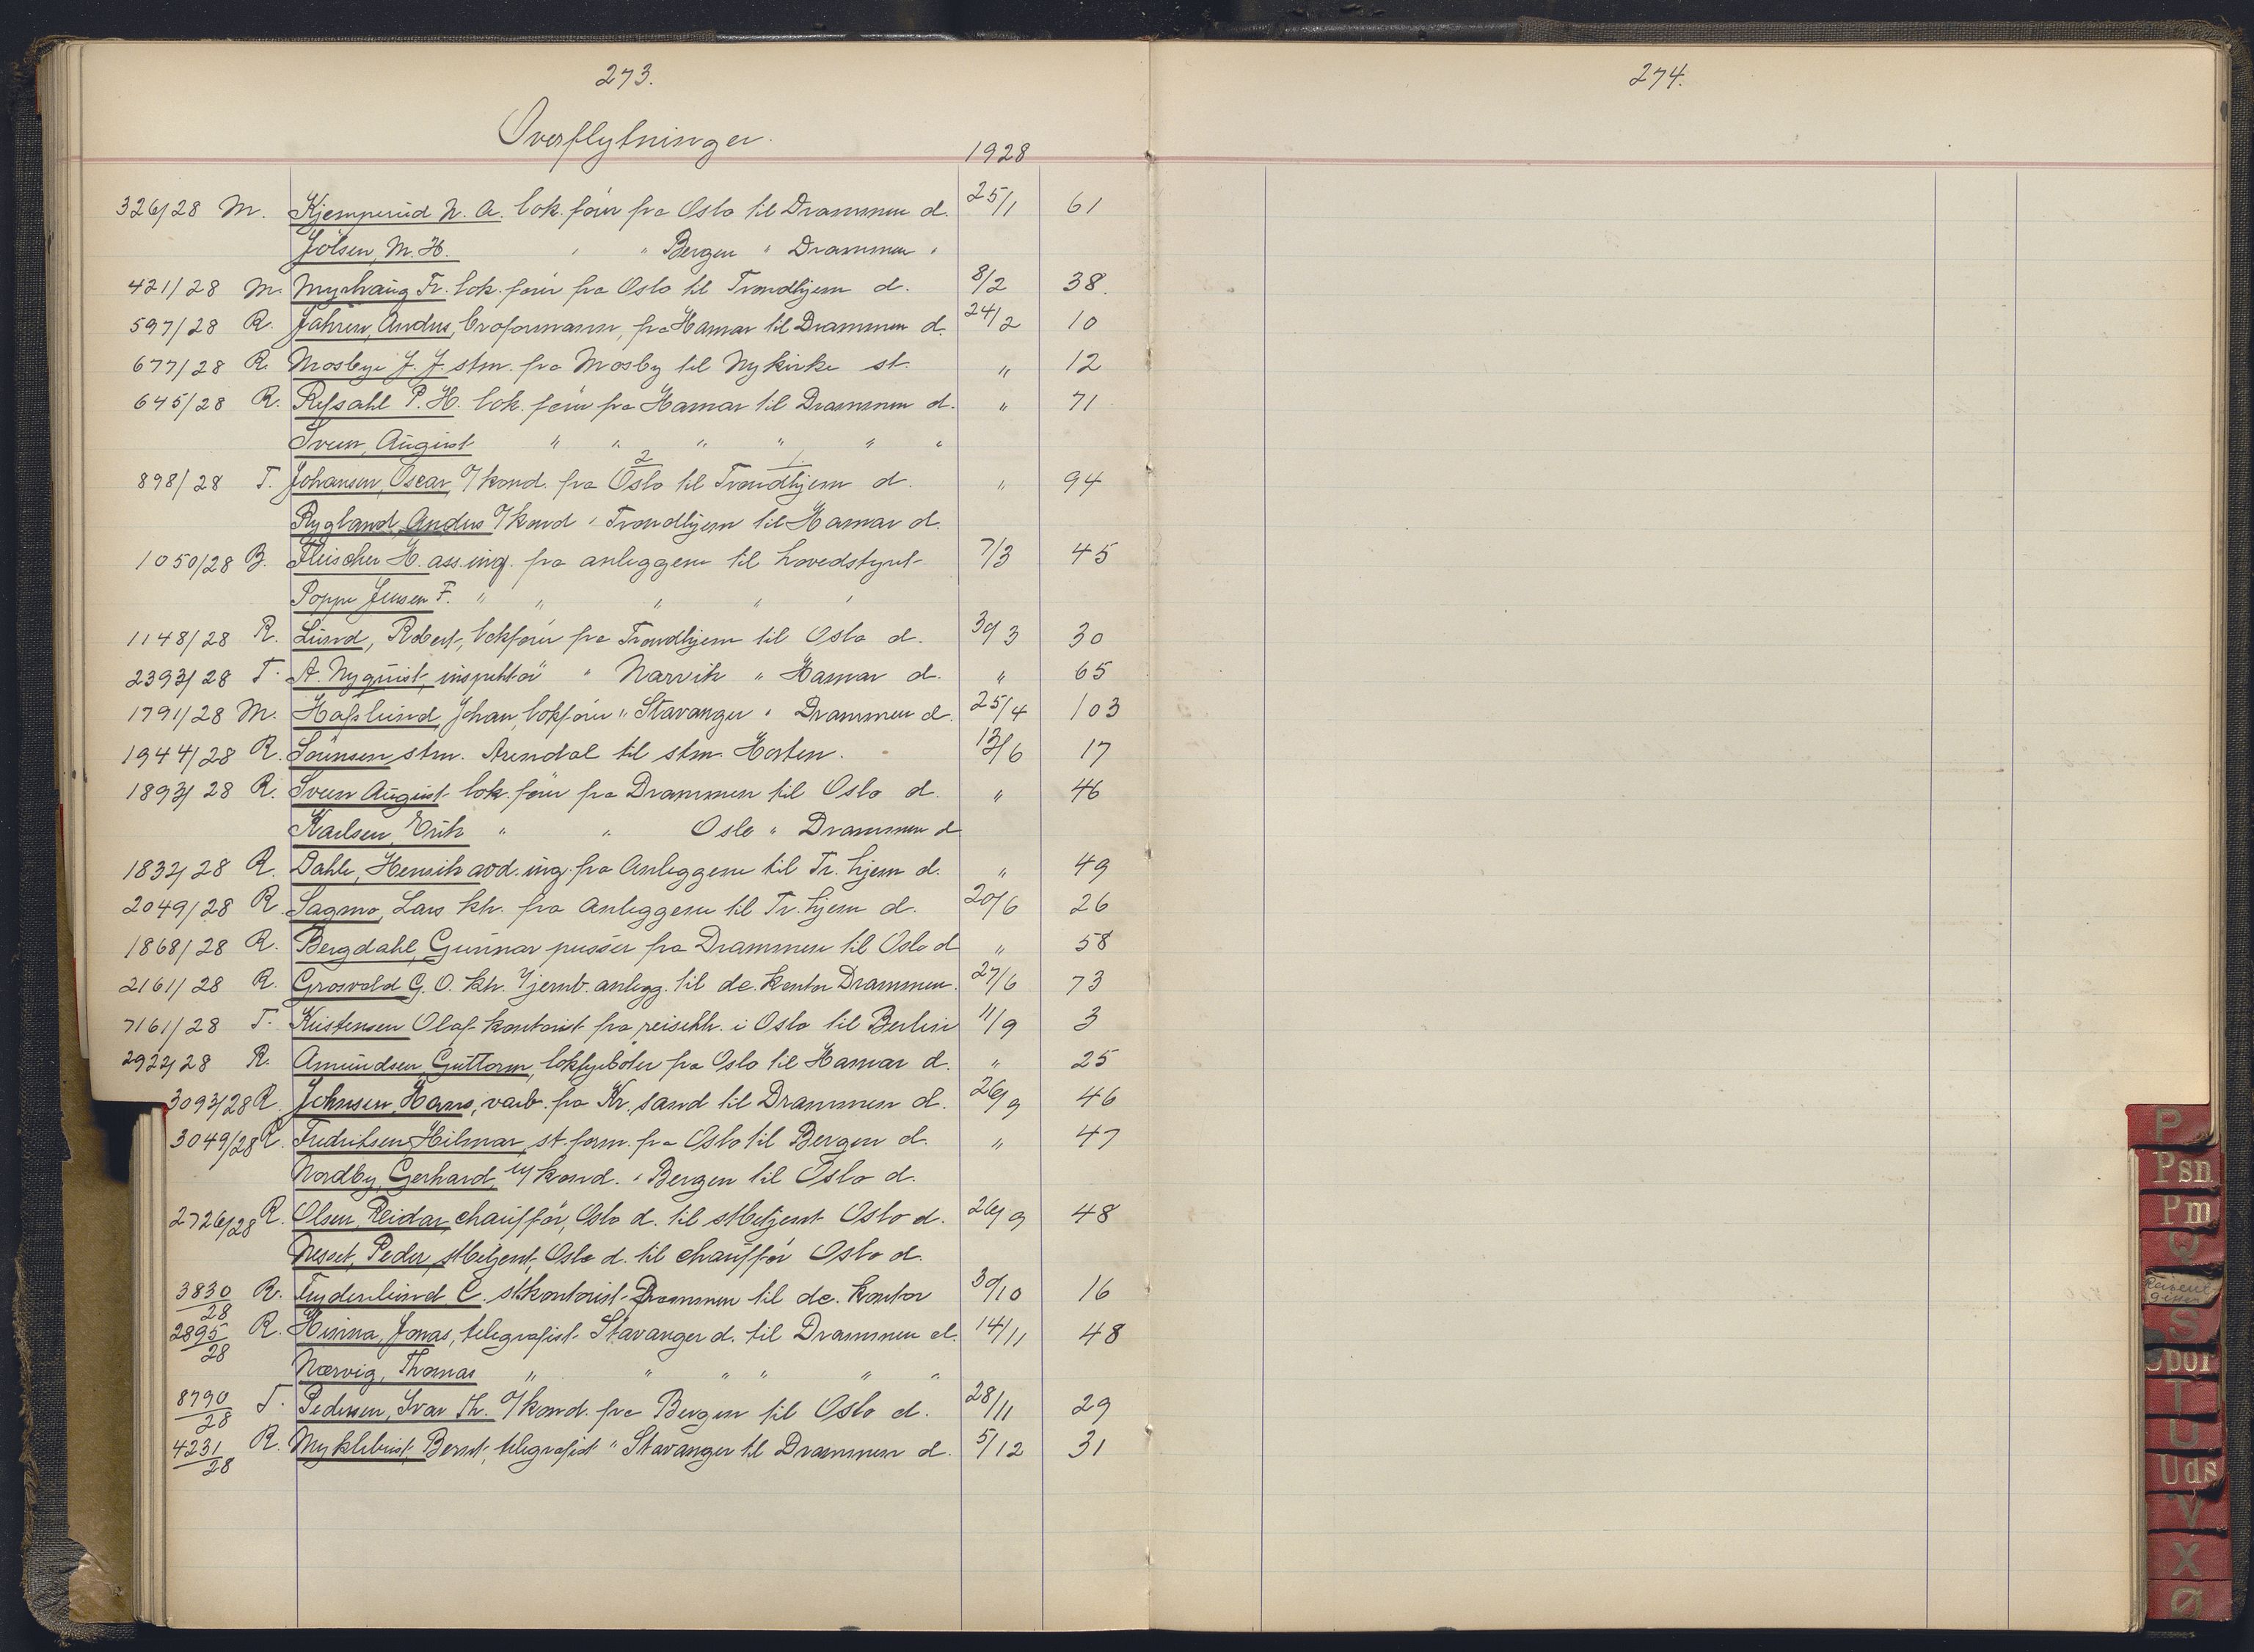 273.
274.
Overflytninger.
1928
326/28 M. Kjemperud N. A. lok. förer fra Oslo til Drammen d. 25/1 61
Jölsen, M. H. " " Bergen " Drammen "
421/28 M. Myrhaug Tr. lok. förer fra Oslo til Trondhjem d. 8/2 38.
597/28 R. Jahren, Anders, broformann, fra Hamar til Drammen d. 24/2 10
677/28 R. Mosbye J. J. stm. fra Mosby til Nykirke st. " 12
645/28 R. Refsahl P. H. lok. förer fra Hamar til Drammen d. " 71
Sveen, August " " " " " "
898/28 T. Johansen, Oscar, o/kond. fra Oslo 2 til Trondhjem 1. d. " 94
Rygland, Anders o/kond " Trondhjem til Hamar d.
1050/28 B. Fleischer H. ass.ing. fra anleggene til hovedstyret 7/3 45
Poppe Jensen F. " " " " "
1148/28 R. Lund, Robert, lokförer fra Trondhjem til Oslo d. 30/3 30
2393/28 T. A. Nyquist, inspektör " Narvik " Hamar d. " 65
1791/28 M. Hafslund, Johan, lokförer " Stavanger " Drammen d. 25/4 103
1944/28 R. Sörensen stm. Arendal til stm. Horten. 13/6 17
1893/28 R. Sveen August lok. förer fra Drammen til Oslo d. " 46
Karlsen, Erik " " Oslo " Drammen d
1832/28 R. Dahle, Henrik avd. ing. fra Anleggene til Tr. hjem d. " 49
2049/28 R. Sagmo, Lars kh. fra Anleggene til Tr. hjem d. 20/6 26
1868/28 R. Bergdahl, Gunnar pusser fra Drammen til Oslo d " 58
2161/28 R. Grosvold G. O. kh. v/jernb. anlegg. til dc. kontor Drammen. 27/6 73
7161/28 T. Kristensen Olaf kontorist fra reisekh. i Oslo til Berlin 11/9 3
2922/28 R. Amundsen, Guttorm, lokfyrböter fra Oslo til Hamar d. " 25
3093/28 R. Johnsen, Hans, varb. fra Kr. sand til Drammen d. 26/9 46
3049/28 R. Fredriksen Hilmar, st. form. fra Oslo til Bergen d. " 47
Nordby, Gerhard, u/kond. " Bergen til Oslo d.
2726/28 R. Olsen, Reidar, chaufför, Oslo d. til stbetjent Oslo d. 26/9 48
Nesset, Peder, stbetjent, Oslo d. til chaufför Oslo d.
3830/28 R. Frydenlund C. st.kontorist Drammen til dc. kontor 30/10 16
2895/28 R. Hinna, Jonas, telegrafist Stavanger d. til Drammen d. 14/11 48
Nærvig, Thomas " " " " " "
8790/28 T. Pedersen, Ivar Th. o/kond. fra Bergen til Oslo d. 28/11 29
4231/28 R. Myklebust, Bernt, telegrafist " Stavanger til Drammen d. 5/12 31
P
Psn
Pm
Q
S
Spor
T
U
Uds
V
X
Ø